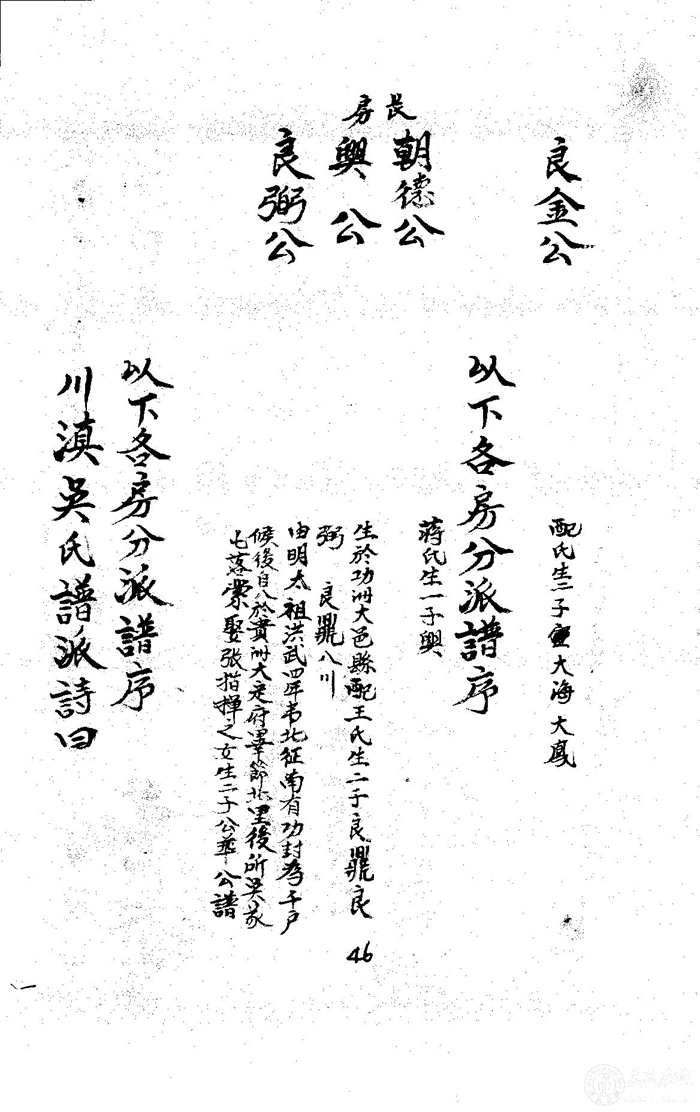 良金公
配氏生二子 大海大鳳
以下各房分派譜序
長房
朝德公
蔣氏生一子興
興公
生於功洲大邑縣配王氏生二子良鼎良
弼 良鼎入川
良弼公
由明太祖洪武四年 北征南有功封為千戶
候後自入於貴洲大定府畢節北里後所吳家
屯落業娶張指揮之女生二子公華公譜
以下各房分派譜序
川滇吳氏譜派詩曰
46